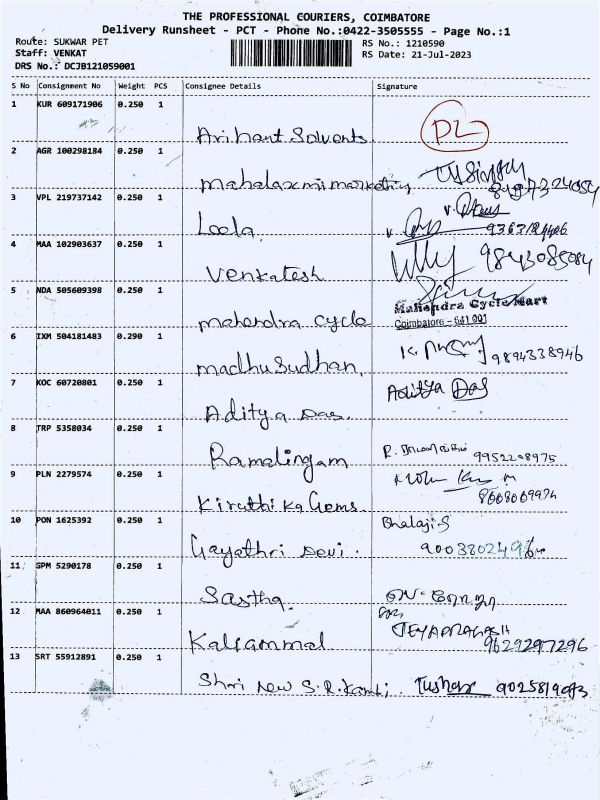 THE PROFESSIONAL COURIERS, COIMBATORE
Delivery Runsheet - PCT - Phone No.:0422-3505555 - Page No.:1
Route: SUKWAR PET
RS No.: 1210590
Staff: VENKAT
RS Date: 21-Jul-2023
DRS No.: DCJB121059001
S No Consignment No Weight PCS Consignee Details Signature
1 KUR 609171906 0.250 1
Arihant Solvents
2 AGR 100298184 0.250 1
mahalaxmi marketing
3 VPL 219737142 0.250 1
Leela.
4 MAA 102903637 0.250 1
Venkatesh 9843085084
5 NDA 505609398 0.250 1
Mahendra Cycle Mart
mahendra cycle Coimbatore - 641 001
6 IXM 504181483 0.290 1
madhu Sudhan. 9894338946
7 KOC 60720801 0.250 1 Aditya Das
Aditya Das.
8 TRP 5358034 0.250 1
Ramalingam 9952208975
9 PLN 2279574 0.250 1
Kiruthika Gems.
10 PON 1625392 0.250 1 Bhalaji.S
Gayathri Devi.
11 SPM 5290178 0.250 1
Sastha.
12 MAA 860964011 0.250 1 JEYAPRAGASH
Kaliammal 9629297296
13 SRT 55912891 0.250 1
Shri New S.R. Tushar